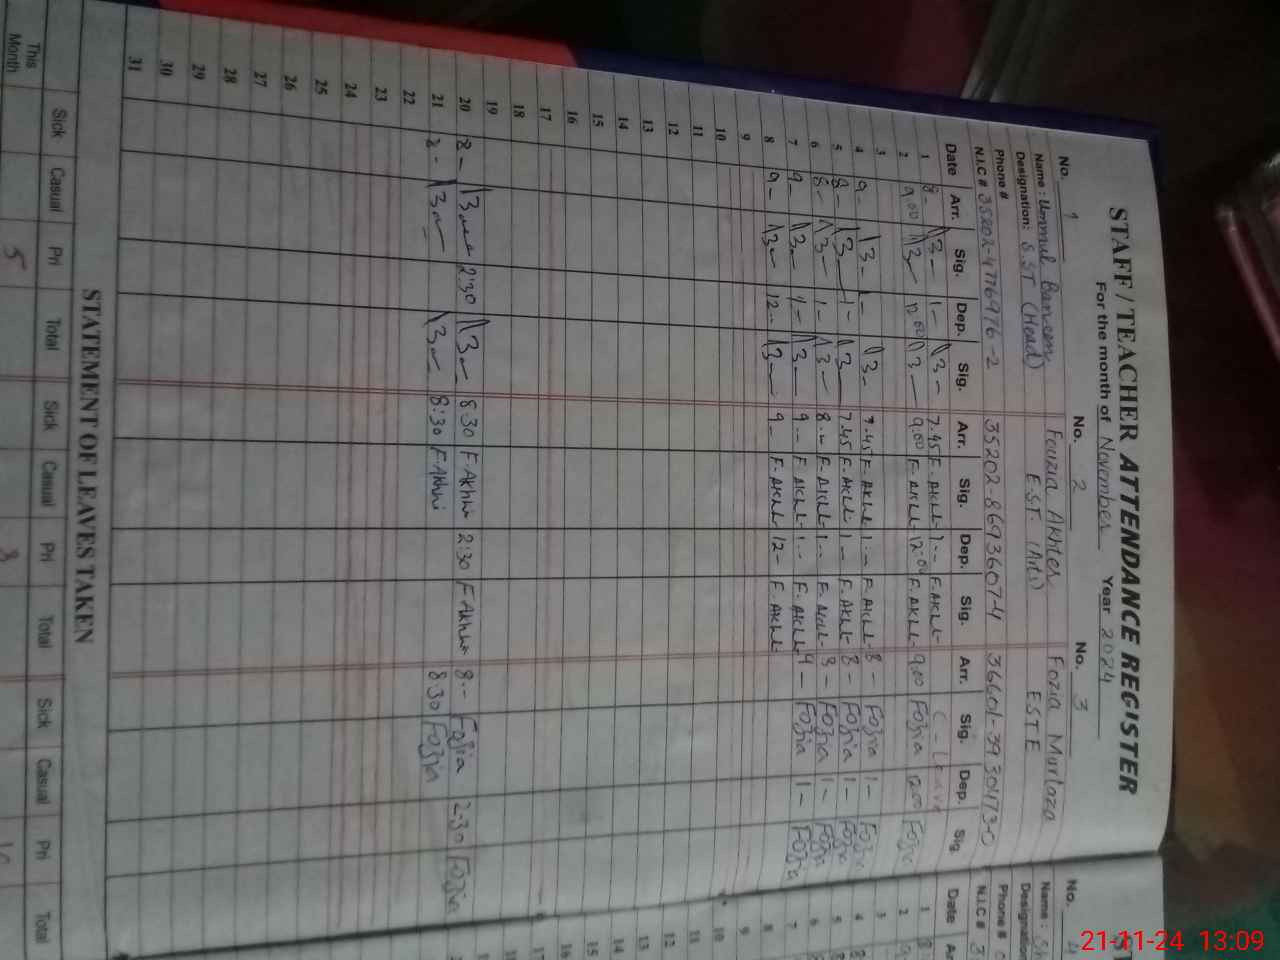 STAFF / TEACHER ATTENDANCE REGISTER
For the month of November Year 2024
No. 1 No. 2 No. 3
Name : Ummul Baneen Fouzia Akhter Fozia Murtaza
Designation: S.ST (Head) E.S.T. (Arts) ESTE
Phone #
N.I.C # 35202-4776976-2 35202-8693607-4 36601-3930473-0
Date Arr. Sig. Dep. Sig. Arr. Sig. Dep. Sig. Arr. Sig. Dep. Sig.
1 8- 1- 7.45 F. Akht 1-- F. Akht C-Leave
2 9.00 12.00 9.00 F. Akht 12:00 F. Akht 9.00 Fozia 12.00 Fozia
3
4 9- 1- 7.45 F. Akht 1-- F. Akht 8- Fozia 1- Fozia
5 8- 1- 7.45 F. Akht 1- F. Akht 8- Fozia 1- Fozia
6 8- 1- 8.-- F. Akht 1-- F. Akht 8- Fozia 1- Fozia
7 9- 1- 9.-- F. Akht 1-- F. Akht 9- Fozia 1- Fozia
8 9- 12-- 9- F. Akht 12- F. Akht
9
10
11
12
13
14
15
16
17
18
19
20 8- 2:30 8:30 F Akhter 2:30 F Akhter 8-- Fozia 2:30 Fozia
21 8- 8:30 F. Akhter 8:30 Fozia
22
23
24
25
26
27
28
29
30
31
STATEMENT OF LEAVES TAKEN
Sick Casual Pri Total Sick Casual Pri Total Sick Casual Pri Total
This Month 5 8 10
No. 4
Name :
Designation
Phone #
N.I.C # 3
Date
1
2
3
4
5
6
7
8
9
10
11
12
13
14
15
16
17
21-11-24 13:09